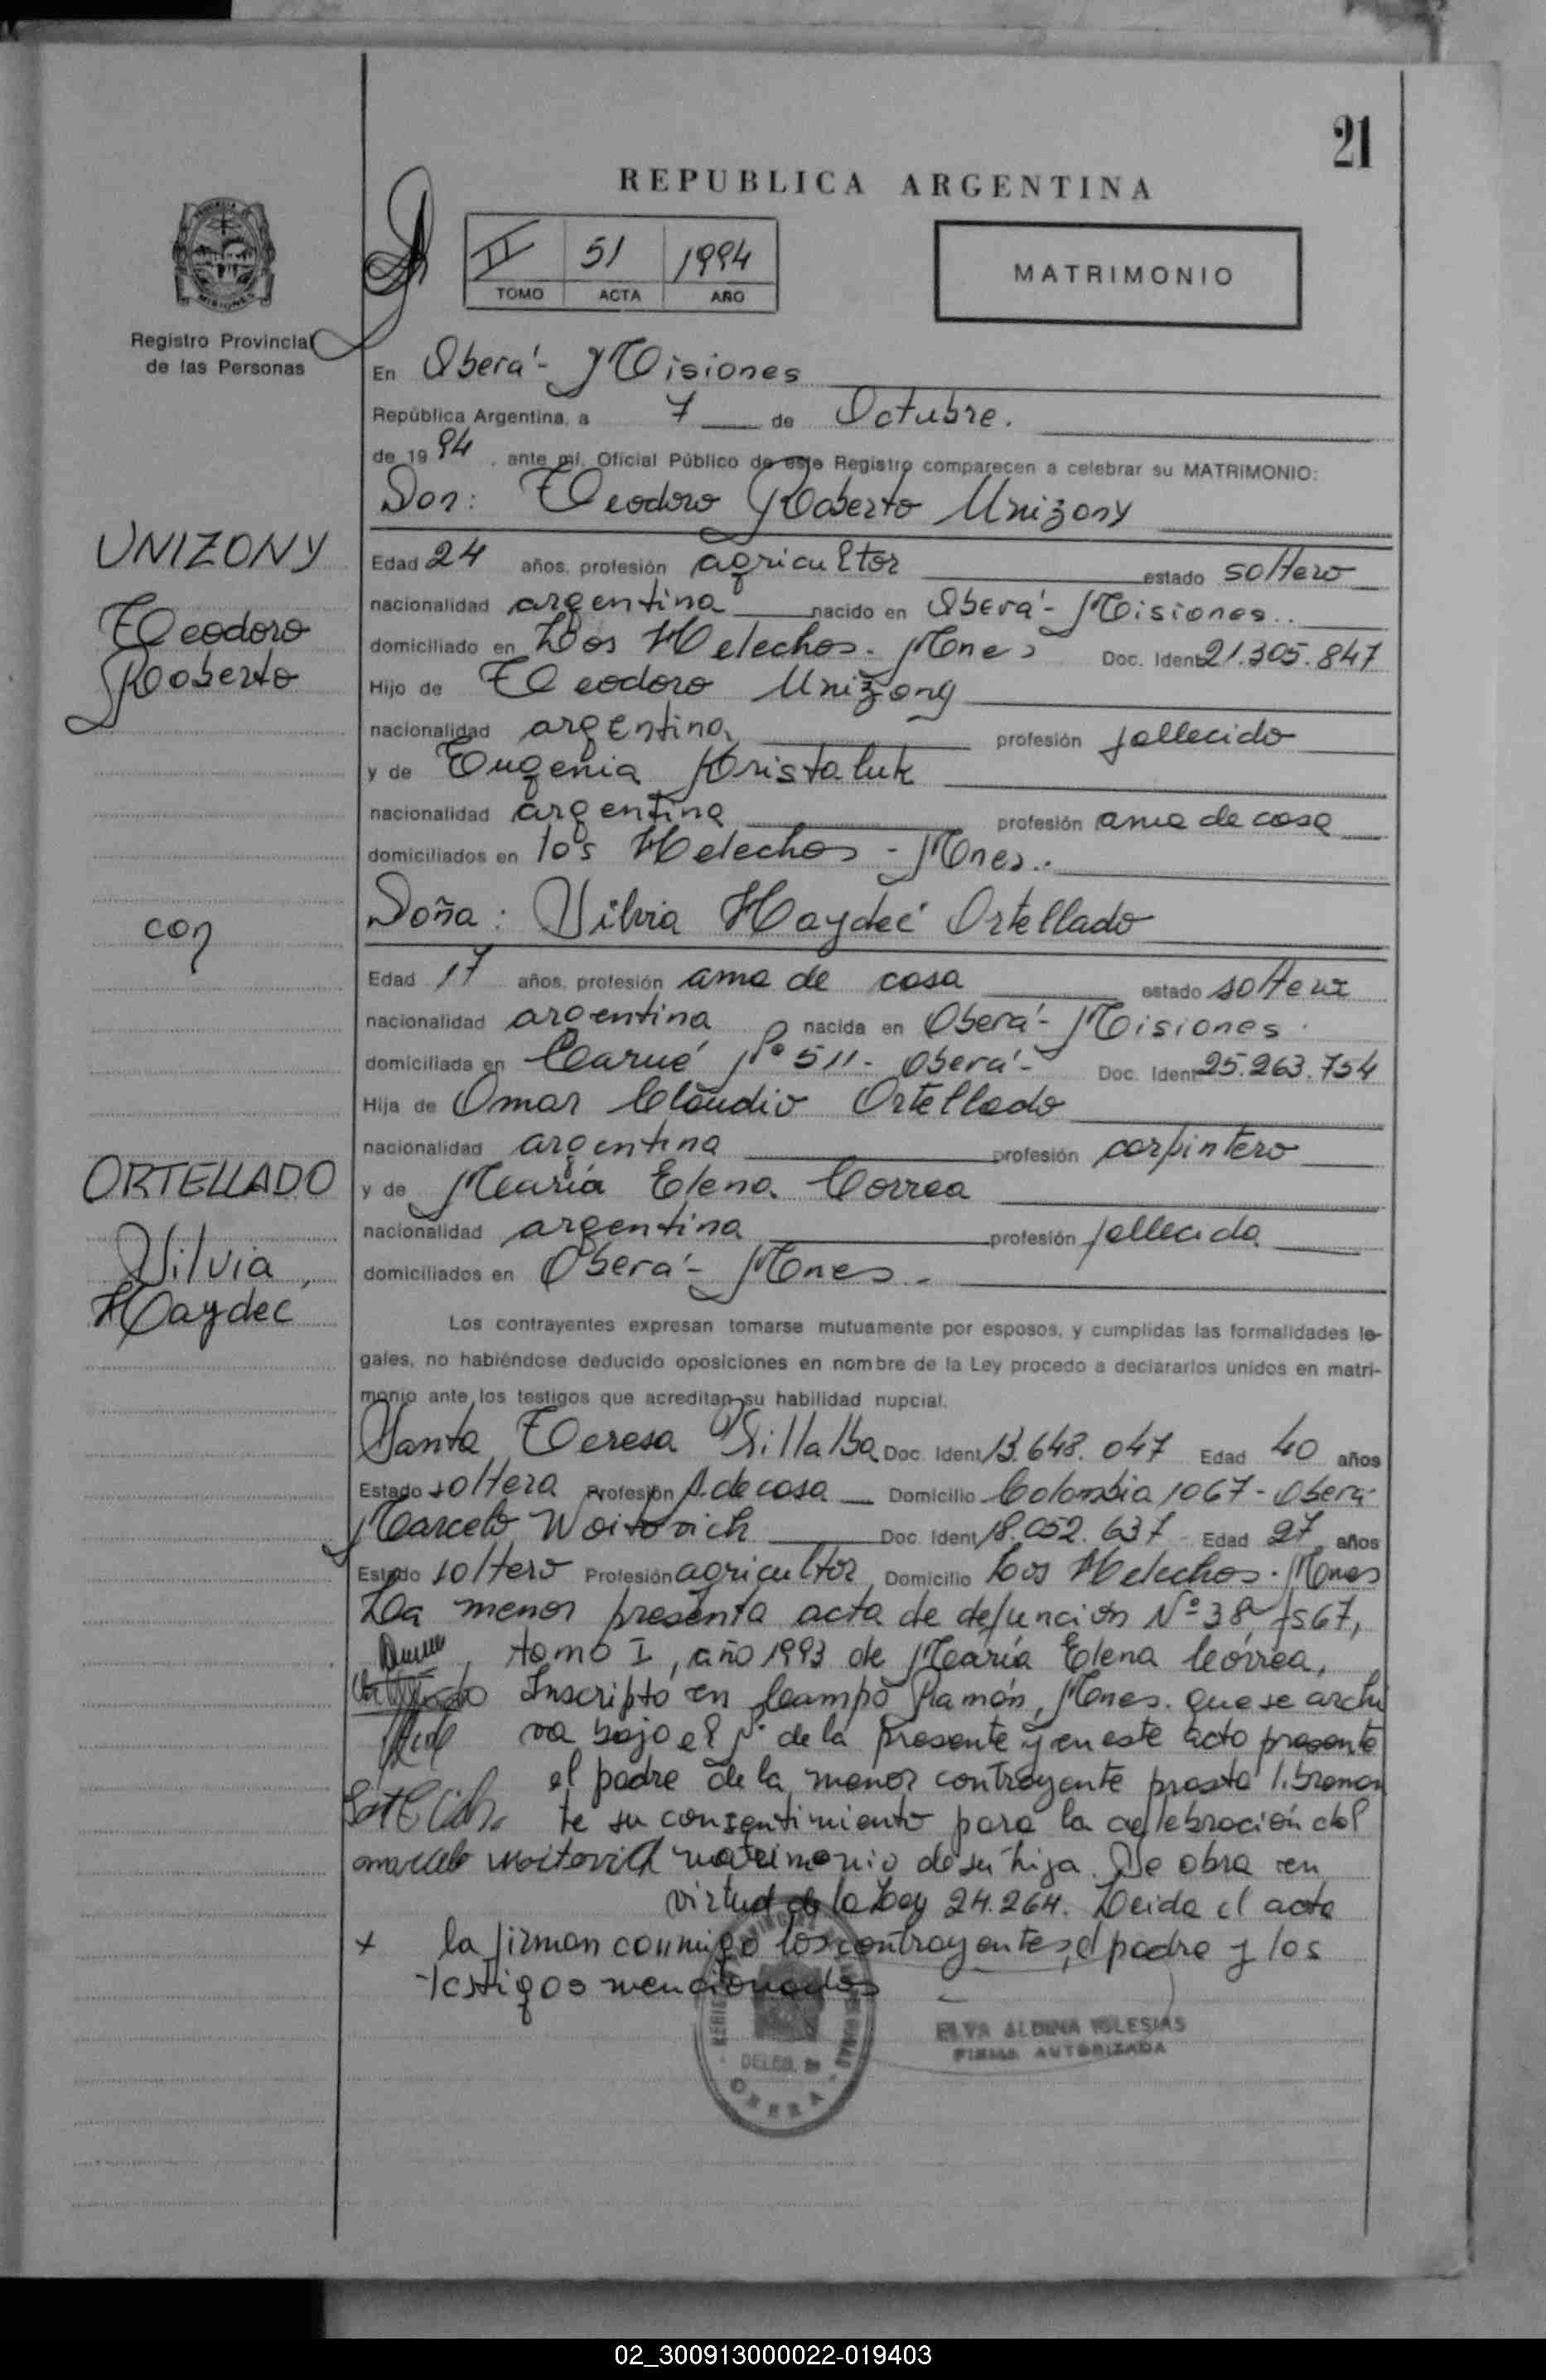 21
REPUBLICA ARGENTINA
II 51 1994
TOMO ACTA AÑO
MATRIMONIO
Registro Provincial
de las Personas
En Oberá - Misiones
República Argentina, a 7 de Octubre.
de 1994, ante mí, Oficial Público de este Registro comparecen a celebrar su MATRIMONIO:
Don: Teodoro Roberto Unizony
UNIZONY
Teodoro
Roberto
Edad 24 años, profesión agricultor estado soltero
nacionalidad argentina nacido en Oberá - Misiones..
domiciliado en Los Helechos - Mnes Doc. Ident 21.305.847
Hijo de Teodoro Unizony
nacionalidad argentina profesión fallecido
y de Eugenia Kristaluk
nacionalidad argentina profesión ama de casa
domiciliados en los Helechos - Mnes..
con
Doña: Silvia Haydeé Ortellado
Edad 17 años, profesión ama de casa estado soltera
nacionalidad argentina nacida en Oberá - Misiones.
domiciliada en Carué Nº 511 - Oberá - Doc. Ident 25.263.754
Hija de Omar Claudio Ortellado
nacionalidad argentina profesión carpintero
ORTELLADO
Silvia
Haydeé
y de María Elena Correa
nacionalidad argentina profesión fallecida
domiciliados en Oberá - Mnes.-
Los contrayentes expresan tomarse mutuamente por esposos, y cumplidas las formalidades le-
gales, no habiéndose deducido oposiciones en nombre de la Ley procedo a declararlos unidos en matri-
monio ante los testigos que acreditan su habilidad nupcial.
Santa Teresa Villalba Doc. Ident 13.648.047 Edad 40 años
Estado soltera Profesión A. de casa Domicilio Colombia 1067 - Oberá
Marcelo Woitovich Doc. Ident 18.052.637 Edad 27 años
Estado soltero Profesión agricultor Domicilio Los Helechos - Mnes
La menor presenta acta de defunción Nº 38 fs 67,
tomo I, año 1993 de María Elena Correa,
Inscripto en Campo Ramón, Mnes. que se archi
va bajo el Nº de la presente y en este acto presente
el padre de la menor contrayente presta libremen
te su consentimiento para la celebración del
marcelo woitovich matrimonio de su hija. Se obra en
virtud de la Ley 24.264. Leida el acta
x la firman conmigo los contrayentes, el padre y los
testigos mencionados
DELEG.
OBERA
ELVA ALDINA IGLESIAS
FIRMA AUTORIZADA
02_300913000022-019403